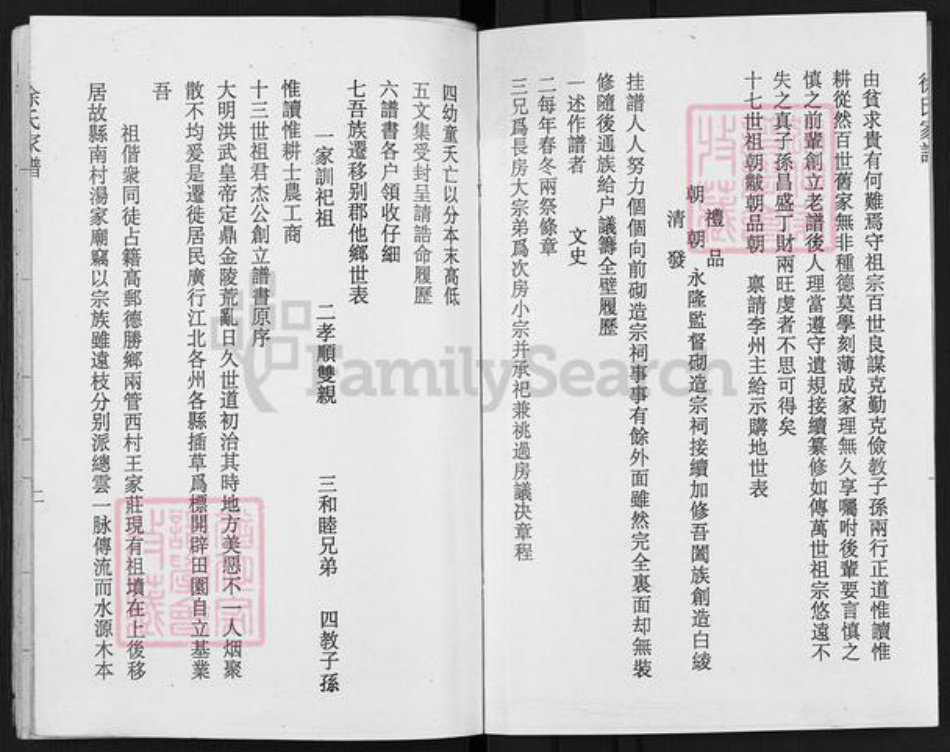 徐氏家譜
由貧求貴有何難焉守祖宗百世良謀克勤克儉教子孫兩行正道惟讀惟
耕從然百世舊家無非種德莫學刻薄成家理無久享囑咐後輩要言慎之
慎之前輩創立老譜後人理當遵守遺規接續纂修如傳萬世祖宗悠遠不
失之真子孫昌盛丁財兩旺虔者不思可得矣
十七世祖朝黻朝品朝 稟請李州主給示購地世表
禮品
朝 朝 永隆監督砌造宗祠接續加修吾闔族創造白綾
清發
挂譜人人努力個個向前砌造宗祠事事有餘外面雖然完全裏面却無裝
修隨後通族給户議籌全壁履歷
一述作譜者 文史
二每年春冬兩祭條章
三兄爲長房大宗弟爲次房小宗并承祀兼祧過房議决章程
四幼童夭亡以分本末高低
五文集受封呈請誥命履歷
六譜書各户領收仔細
七吾族遷移别郡他鄉世表
一家訓祀祖 二孝順雙親 三和睦兄弟 四教子孫
惟讀惟耕士農工商
十三世祖君杰公創立譜書原序
大明洪武皇帝定鼎金陵荒亂日久世道初治其時地方美惡不一人烟聚
散不均爰是遷徙居民廣行江北各州各縣插草爲標開辟田園自立基業
吾
祖偕衆同徒占籍高郵德勝鄉兩管西村王家莊現有祖墳在上後移
居故縣南村湯家廟竊以宗族雖遠枝分别派總雲一脉傳流而水源木本
徐氏家譜
二
FamilySearch